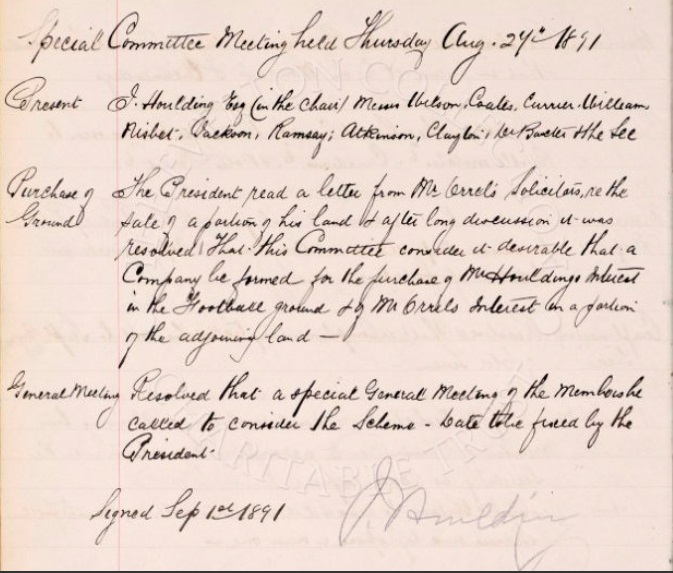 Special Committee Meeting held Thursday Aug. 27th 1891
Present J. Houlding Esq (in the Chair) Messrs Wilson, Coates, Currier, Williams
Nisbet, Jackson, Ramsay, Atkinson, Clayton, Dr Baxter & the Sec
Purchase of The President read a letter from Mr Orrels Solicitors, re the
Ground sale of a portion of his land & after long discussion it was
resolved That this Committee consider it desirable that a
Company be formed for the purchase of Mr Houldings Interest
in the Football ground & of Mr Orrels Interest in a portion
of the adjoining land —
General Meeting Resolved that a special General Meeting of the Members be
called to consider the Scheme - Date to be fixed by the
President.
CHARITABLE TRUST
Signed Sep 1st 1891 J Houlding